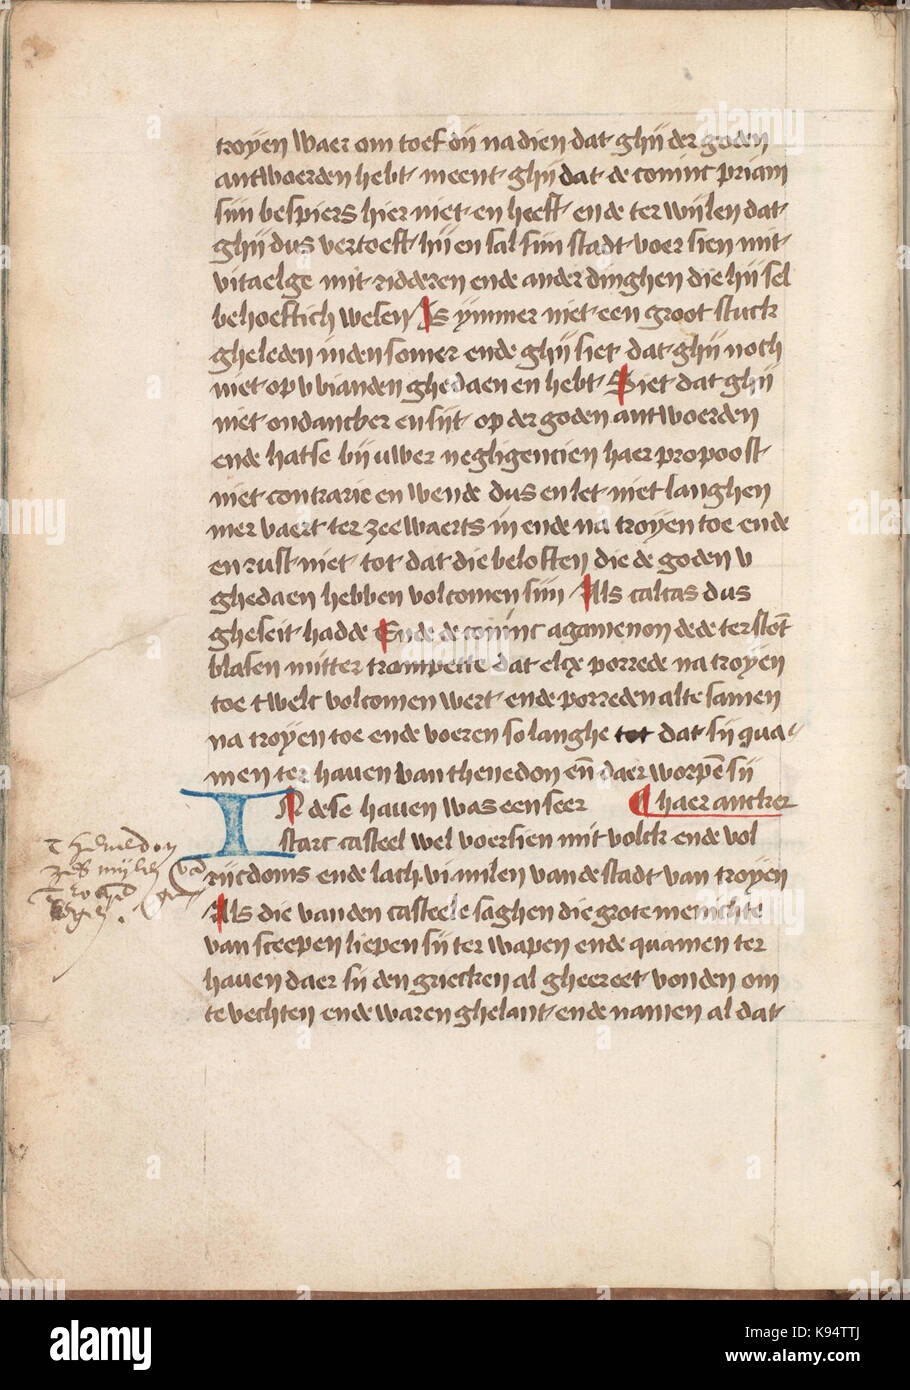 troyen waer om toef dij na dien dat ghij der goden
antwoerden hebt meent ghij dat de coninc priam
sijn bespiers hier niet en heeft ende ter wijlen dat
ghij dus vertoeft hij en sal sijn stadt voer sien mit
vitaelge mit ridderen ende ander dinghen die hij sel
behoeftich wesen Is ymmer niet een groot stuck
gheleden inden somer ende ghij siet dat ghij noch
niet op v vianden ghedaen en hebt Siet dat ghij
niet ondancber en sijt op der goden antwoerden
ende hatse bij uwer negligencien haer propoost
niet contrarie en wende dus en let niet langhen
mer vaert ter zee waerts in ende na troyen toe ende
en rust niet tot dat die beloften die de goden v
ghedaen hebben volcomen sijn Als calcas dus
gheseit hadde Ende de coninc agamenon dede ter stōt
blasen mitter trompette dat elcx porrede na troyen
toe twelc volcomen wert ende porreden alte samen
na troyen toe ende voeren so langhe tot dat sij qua
men ter hauen van thenedon eñ daer worpē sij
IN dese hauen was een seer haer ancker
starc casteel wel voersien mit volck ende vol
rijcdoms ende lach vi milen van de stadt van troyen
Als die van den casteele saghen die grote menichte
van sceepen liepen sij ter wapen ende quamen ter
hauen daer sij den griecken al ghereet vonden om
te vechten ende waren ghelant ende namen al dat
Thenedon
zes mijlen vā
alamy
a
alamy stock photo
K94TTJ
www.alamy.com